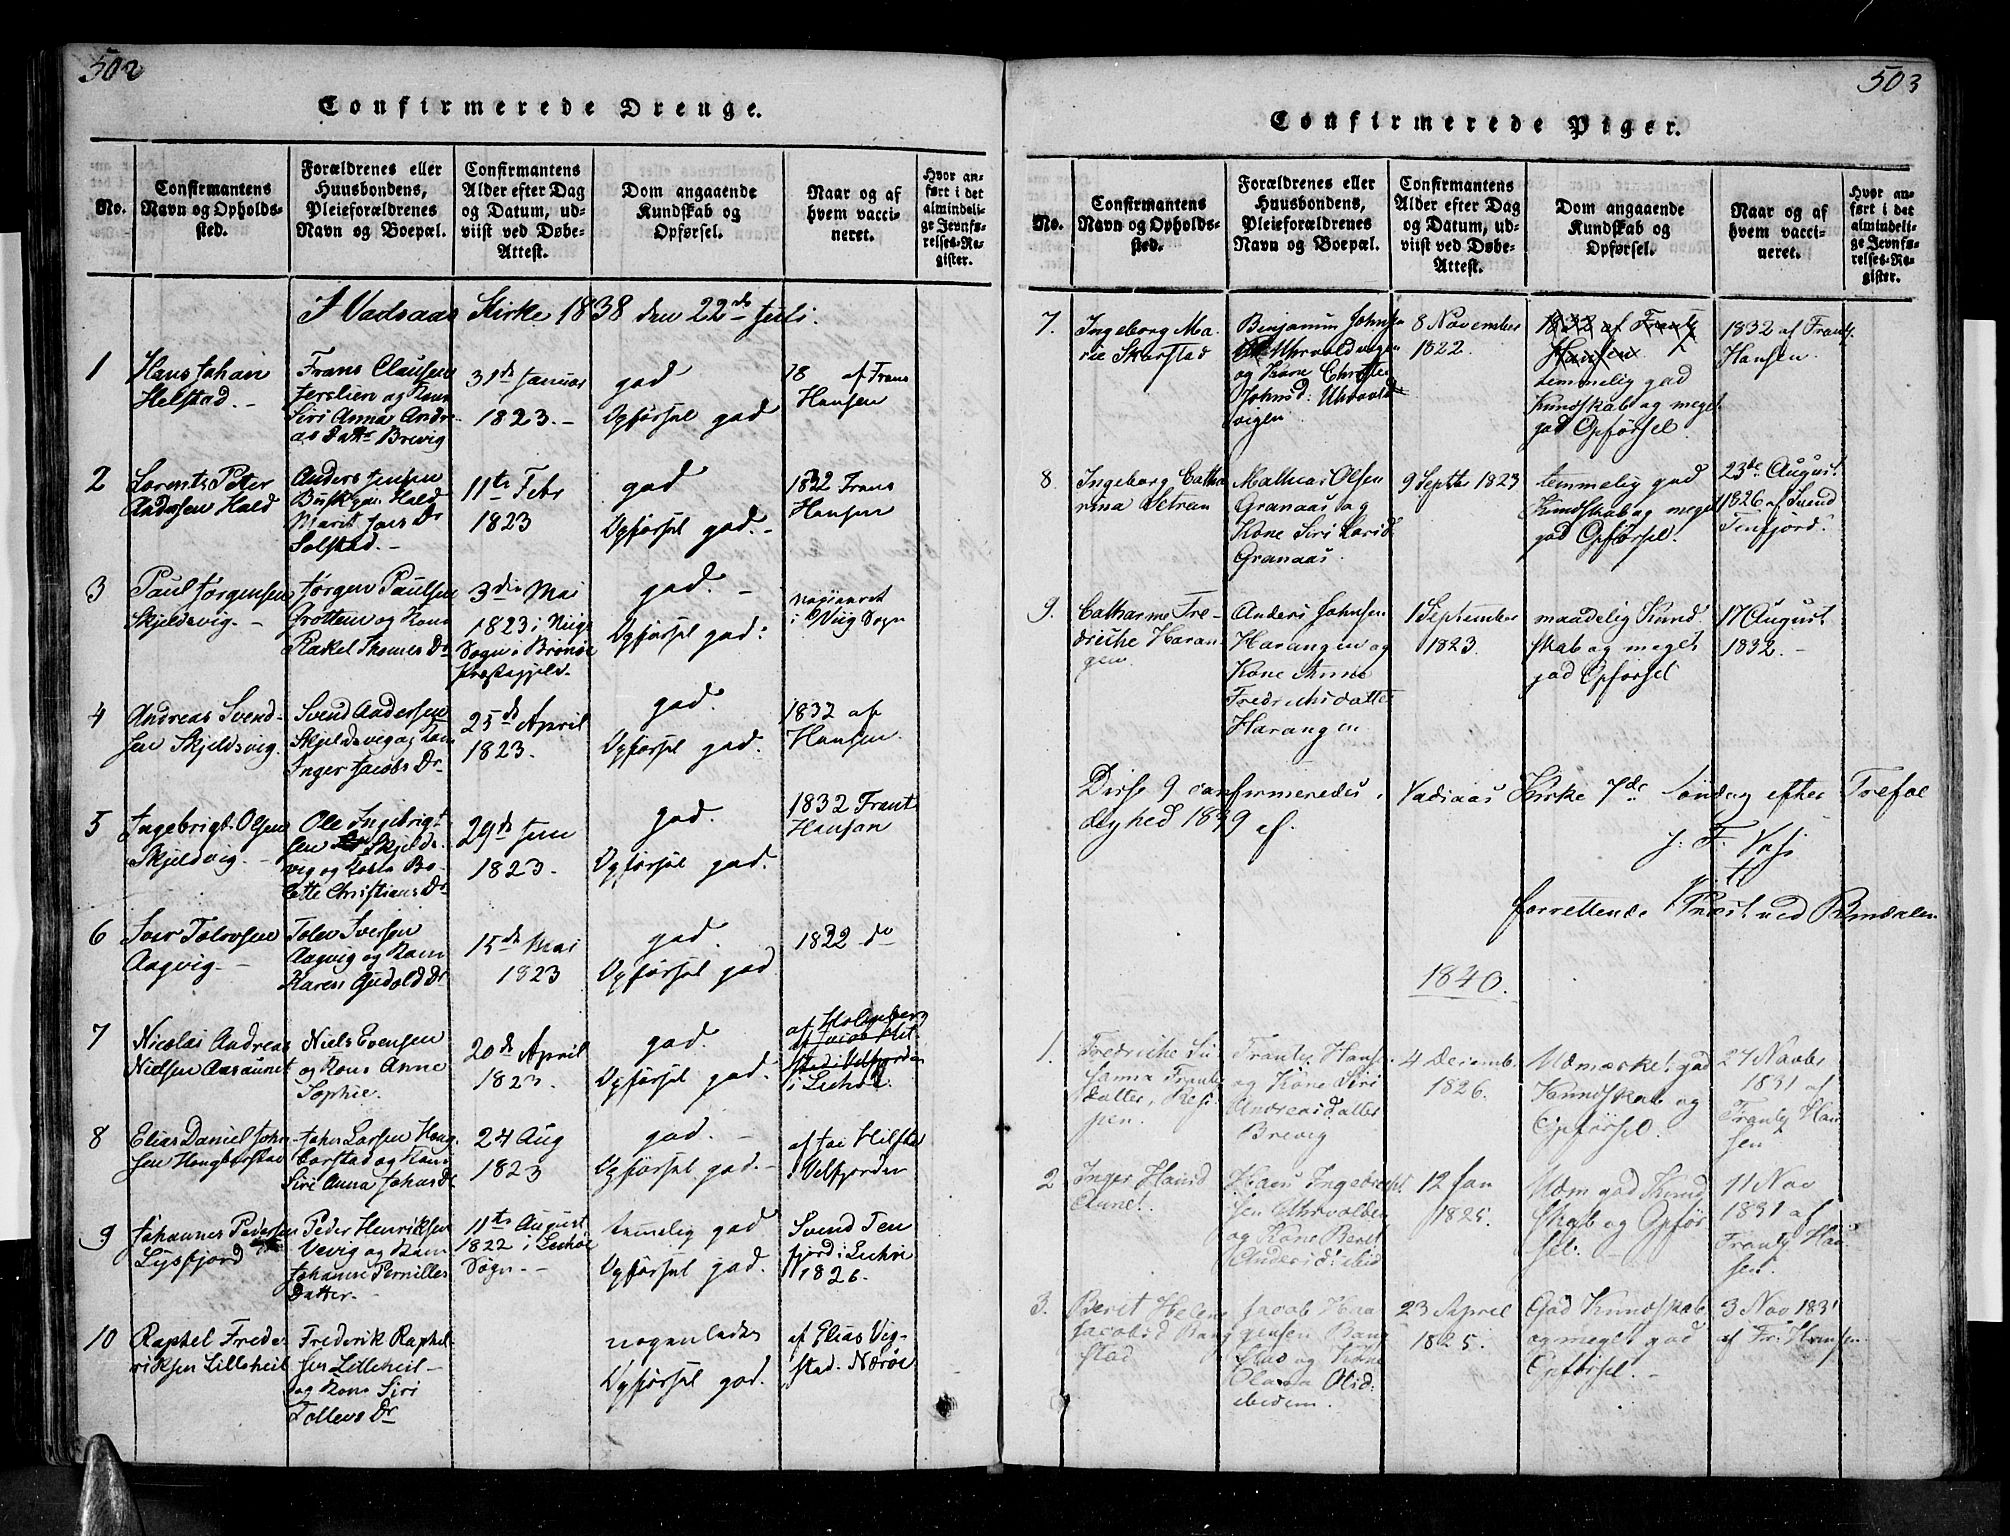 502
Confirmerede Drenge.
No.
Confirmantens
Navn og Opholds-
sted.
Forældrenes eller
Huusbondens,
Pleieforældrenes
Navn og Boepæl.
Confirmantens
Alder efter Dag
og Datum, ud-
viist ved Døbe-
Attest.
Dom angaaende
Kundskab og
Opførsel.
Naar og af
hvem vacci-
neret.
Hvor an-
ført i det
almindeli-
ge Jevnfø-
relses-Re-
gister.
I Vadsaas Kirke 1838 den 22de Juli.
1
Hans Johan
Helstad. -
Frans Clausen
Terslien og Kone
Siri Anna Andre
as Datter Brevig
31de Januar
1823. -
god
Opførsel god
18 af Frans
Hansen
2
Lorents Peter
Andersen Hald
Anders Jensen
Hald
Marit Jons Dr
Solstad. -
11te Febr
1823
god
Opførsel god. -
1832 Frans
Hansen
3
Paul Jørgensen
Skjeldsvig. -
Jørgen Paulsen
Grottem og Kone
Rakel Thomes Dr
3die Mai
1823 i Viigs
Sogn i Brønøe
Præstegjeld.
god. -
Opførsel god.
i Viig Sogn
4
Andreas Svend-
sen Skjeldsvig.
Svend Andersen
Skjeldsvig og Kone
Inger Jacobs Dr
25de April
1823.
god.
Opførsel god.
1832 af
Hansen.
5
Ingebrigt Olsen
Skjeldvig. -
Ole Ingebrigt
sen Skjelds-
vig og Kone Bo-
lette Christians Dr
29de Juni
1823.
god.
Opførsel god.
1832 Frants
Hansen
6
Iver Tolevsen
Aagvig. -
Tolev Iversen
Aagvig og Kone
Karen Gudold Dr
15de Mai
1823
god.
Opførsel god
1832 do
7
Nicolai Andreas
Nielsen Aasaunet
Niels Evensen
og Kone Anne
Sophie.
20de April
1823.
god.
Opførsel god.
af Holmberg
i Lechøe
8
Elias Daniel John
sen Hongborstad
Johns Larsen Hong
borstad og Kone
Siri Anna Johns Dr
24 Aug
1823
god. -
Opførsel god. -
af Jac Hilstad
i Velfjorden
9
Johannes Pedersen
Lysfjord
Peder Henriksen
Vevig og Kone
Johanna Pernilles
Datter. -
11te August
1822 i Lechøe
Sogn. -
temmelig god
Opførsel god.
Svend Ten
fjord i Lechøe
1826.
10
Raphel Frede
riksen Lilleheil
Frederik Raphel
sen Lilleheil -
og Kone Siri
Tollevs Dr
nogenledes
Opførsel god.
af Elias Vig-
stad. Nærøe
503
Confirmerede Piger.
No.
Confirmantens
Navn og Opholds-
sted.
Forældrenes eller
Huusbondens,
Pleieforældrenes
Navn og Boepæl.
Confirmantens
Alder efter Dag
og Datum, ud-
viist ved Døbe-
Attest.
Dom angaaende
Kundskab og
Opførsel.
Naar og af
hvem vacci-
neret.
Hvor an-
ført i det
almindeli-
ge Jevnfø-
relses-Re-
gister.
7.
Ingeborg Ma-
rie Skarstad
Benjamin Johnse
Uhrvoldvigen
og Kone
Johnsd: Uhrvold
vigen
8 November
1822.
1832 af Frantz
Hansen
temmelig god
Kundskab og meget
god Opførsel.
1832 af Frantz
Hansen.
8
Ingeborg Catha
rina Setran
Mathias Olsen
Granaas og
Kone Siri Larsd.
Granaas.
9 Septber 1823
temmelig god
Kundskab og meget
god Opførsel.
23de August
1826 af Svend
Tenfjord.
9.
Catharine Fre-
dericke Haran
gen.
Anders Johnsen
Harangen og
Kone Anne
Fredrichsdatter
Harangen
1 September
1823.
maadelig Kund
skab og meget
god Opførsel
17 August
1832. -
Disse 9 confirmeredes i Vadsaas Kirke 7de Søndag efter Trefol
dighed 1839 af.
forrettende Præst ved Bindalen
1840.
1.
Fredricke Su
sanna Frantz
datter, Resi-
pen.
Frantz Hans
og Kone Siri
Andreasdatter
Brevig
4 Decemb.
1826.
Udmærket god
Kundskab og
Opførsel.
27 Novbr
1831 af
Frantz Han
sen
2
Inger Hansd
Aunet.
Hans Ingebrigt
sen Uhrvolden
og Kone Beret
Andersd: ibid
12 Jan
1825.
Udm god Kund
skab og Opfør
sel. -
11 Nov
1831 af
Frantz Han
sen.
3.
Beret Helena
Jacobsd Bang
stad
Jacob Haa
gensen Bang
stad og Kone
Olava Olsd:
ibidem.
23 April
1825.
God Kundskab
og meget god
Opførsel. -
3 Nov 1831
af Fr: Hansen